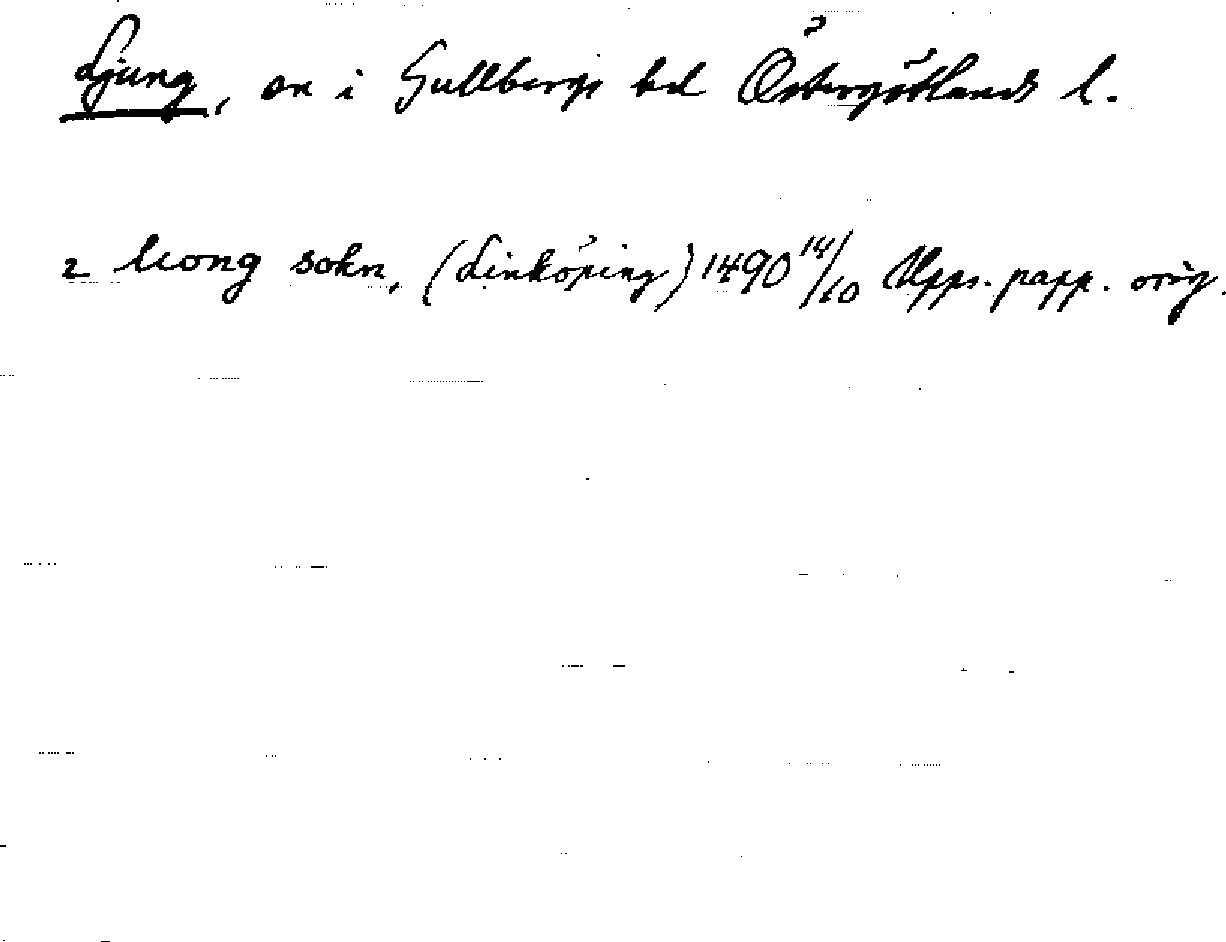 Ljung, sn i Gullbergs hd Östergötlands l.
2 liong sokn, (Linköping) 1490 14/10 Upps. papp. orig.